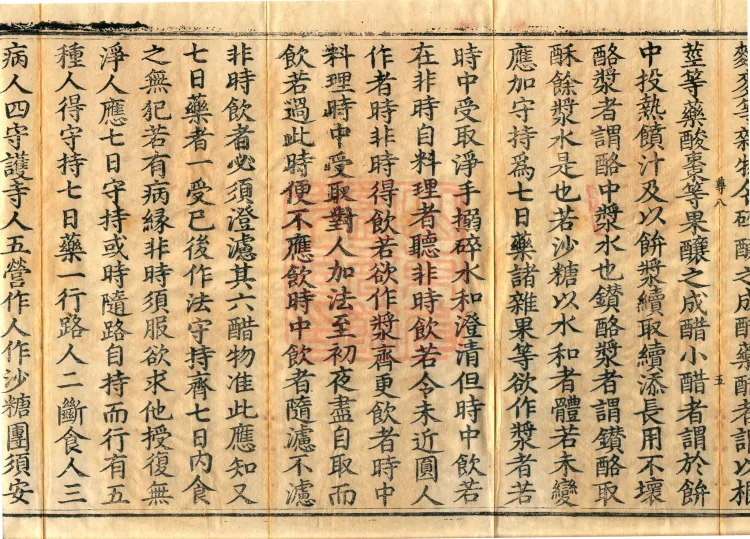 麥等雜物令碎釀之成醋藥醋者謂以根
尊八
五
莖等藥酸棗等果釀之成醋小醋者謂於餅
中投熱饙汁及以餅漿續取續添長用不壞
酪漿者謂酪中漿水也鑚酪漿者謂鑚酪取
酥餘漿水是也若沙糖以水和者體若未變
應加守持爲七日藥諸雜果等欲作漿者若
時中受取淨手搦碎水和澄清但時中飲若
在非時自料理者聽非時飲若令未近圓人
作者時非時得飲若欲作漿齊更飲者時中
料理時中受取對人加法至初夜盡自取而
飲若過此時便不應飲時中飲者隨濾不濾
非時飲者必須澄濾其六醋物准此應知又
七日藥者一受已後作法守持齊七日內食
之無犯若有病緣非時須服欲求他授復無
淨人應七日守持或時隨路自持而行有五
種人得守持七日藥一行路人二斷食人三
病人四守護寺人五營作人作沙糖團須安